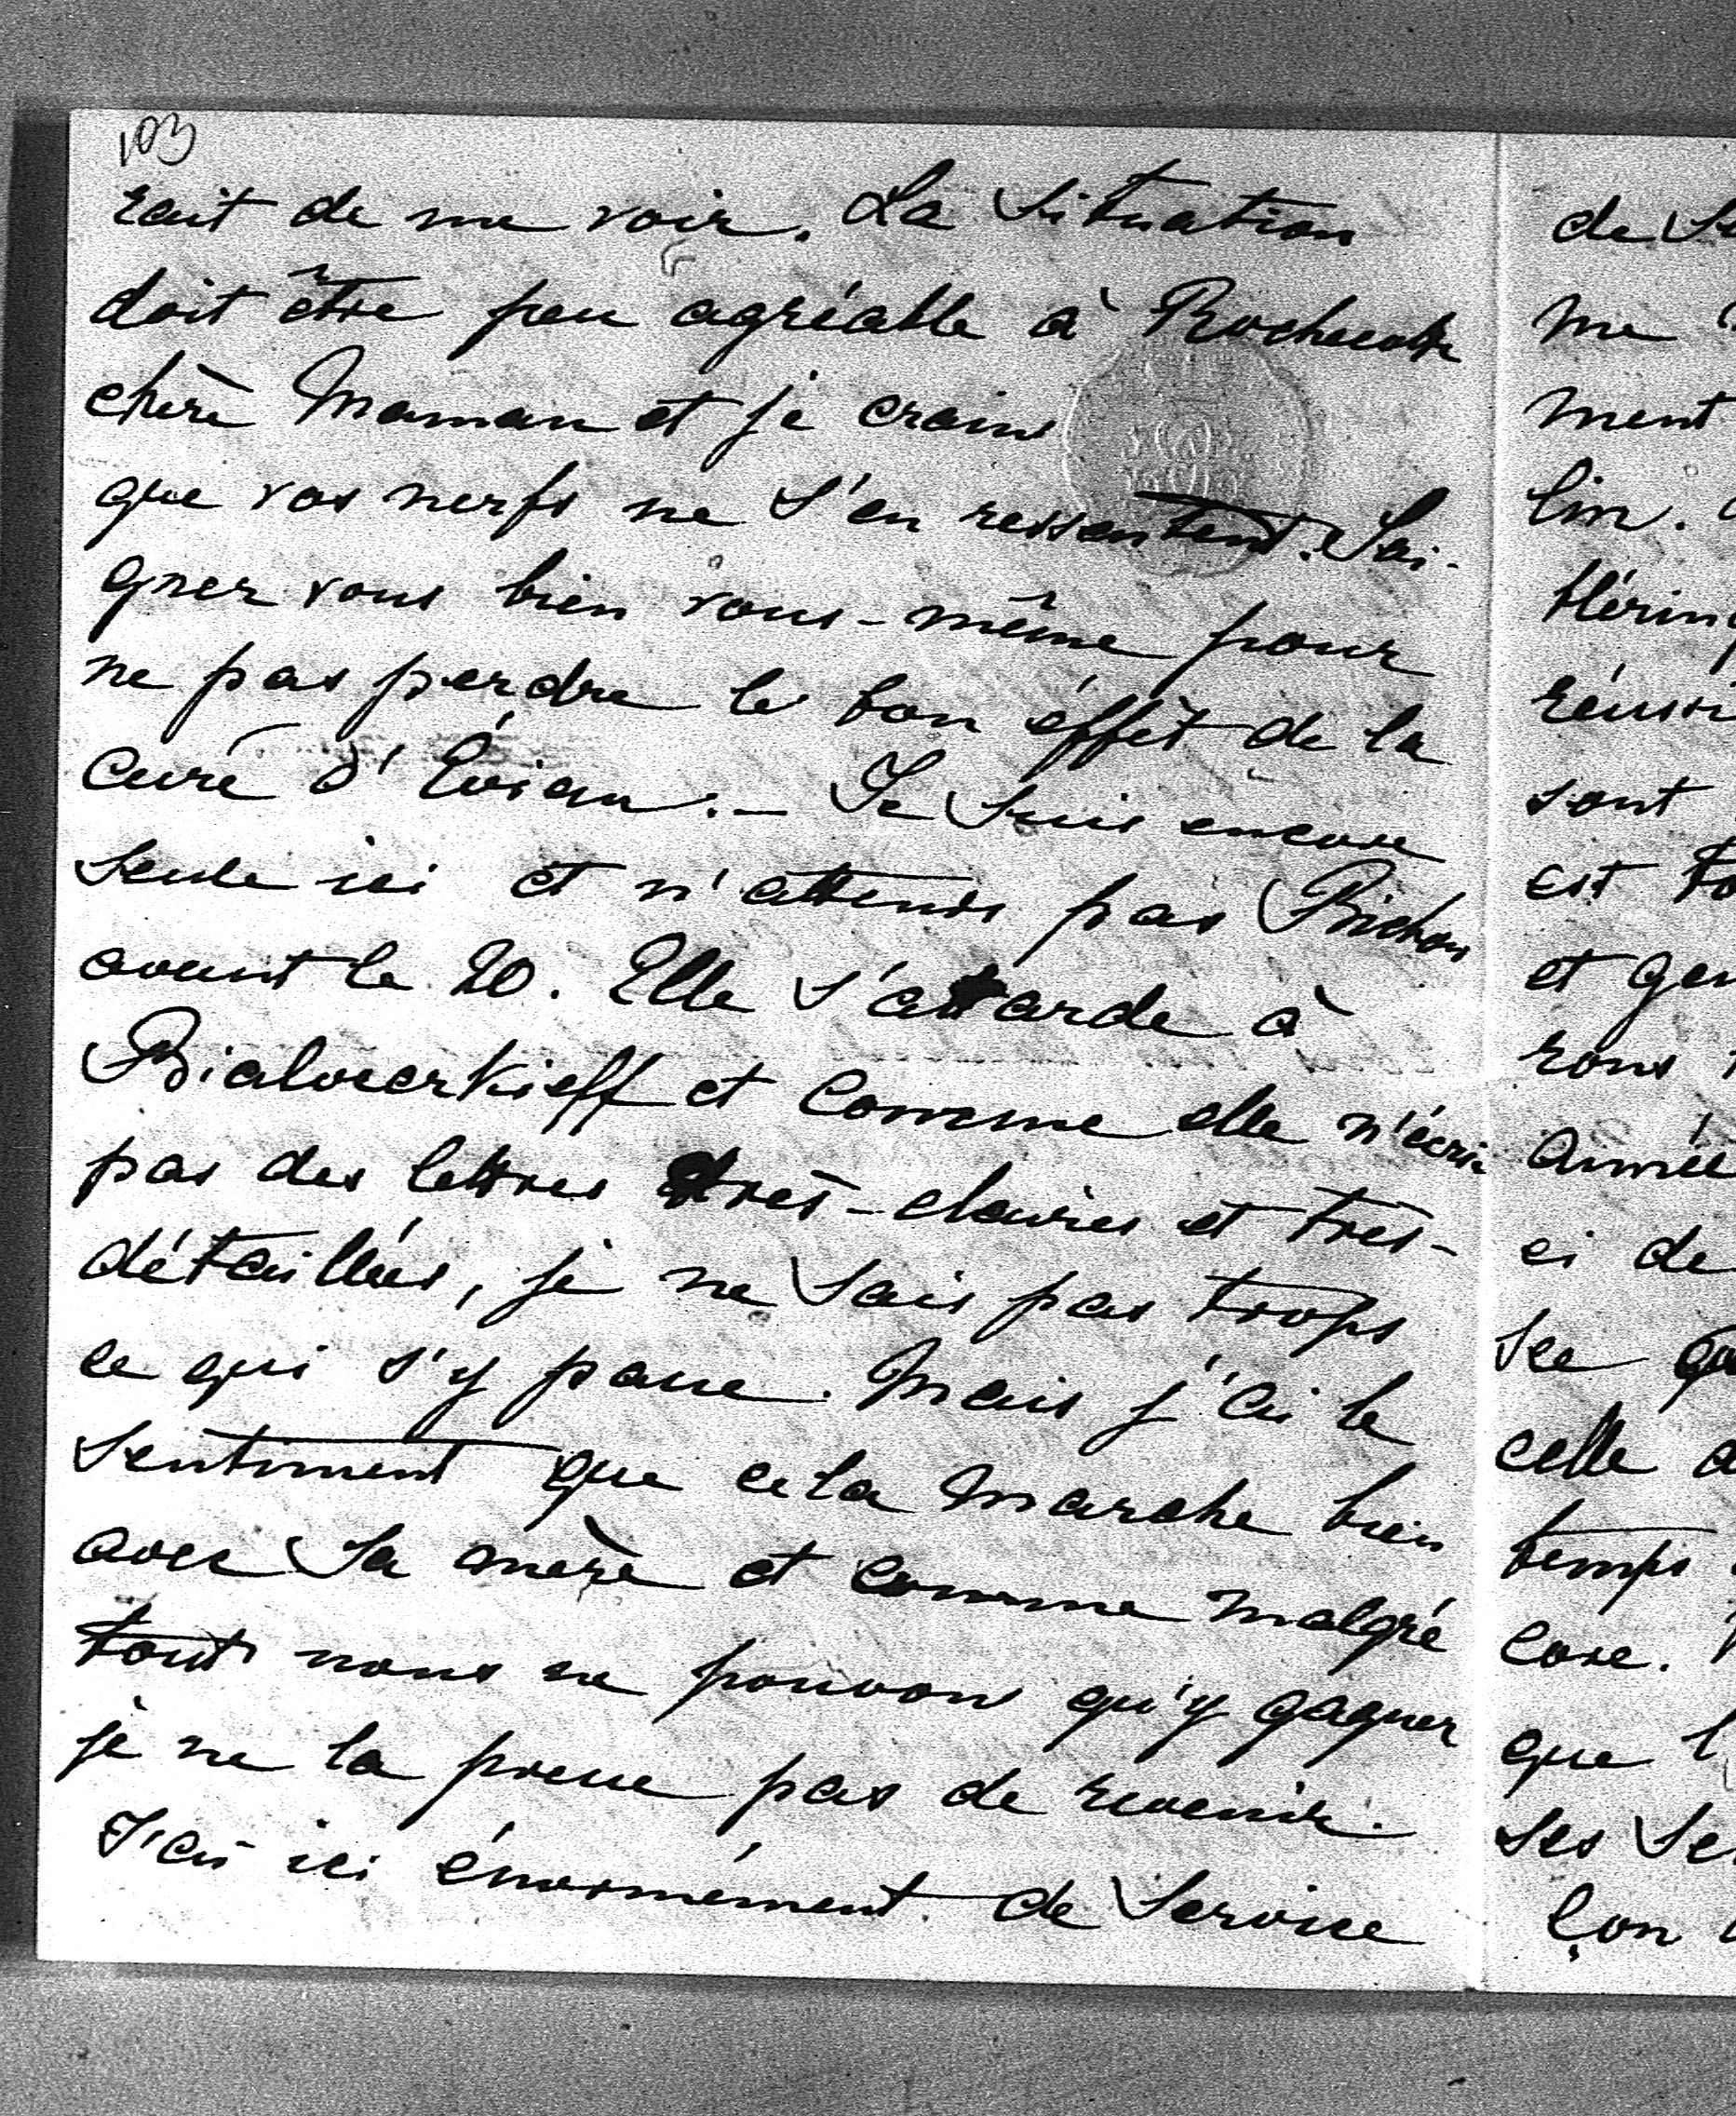 103
rait de me voir. La situation
doit être peu agréable à Rochecotte
chère Maman et je crains
que vos nerfs ne s'en ressentent. Soi-
gner vous bien vous-même pour
ne pas perdre le bon éffèt de la
cure d'Evian. — Je suis encore
seule ici et n'attends pas Bichon
avant le 20. Elle s'attarde à
Bialocerkieff et comme elle n'écri
pas des lettres très-claires et très-
détaillées, je ne sais pas trops
ce qui s'y passe. Mais j'ai le
sentiment que cela marche bien
avec sa mère et comme malgré
tout nous ne pouvons qu'y gagner
je ne la presse pas de revenir.
J'ai ici énormément de service
de
me
ment
lin.
sont
est
et
rons
aimée
ci de
see
celle
temps
core.
que
ses
çon